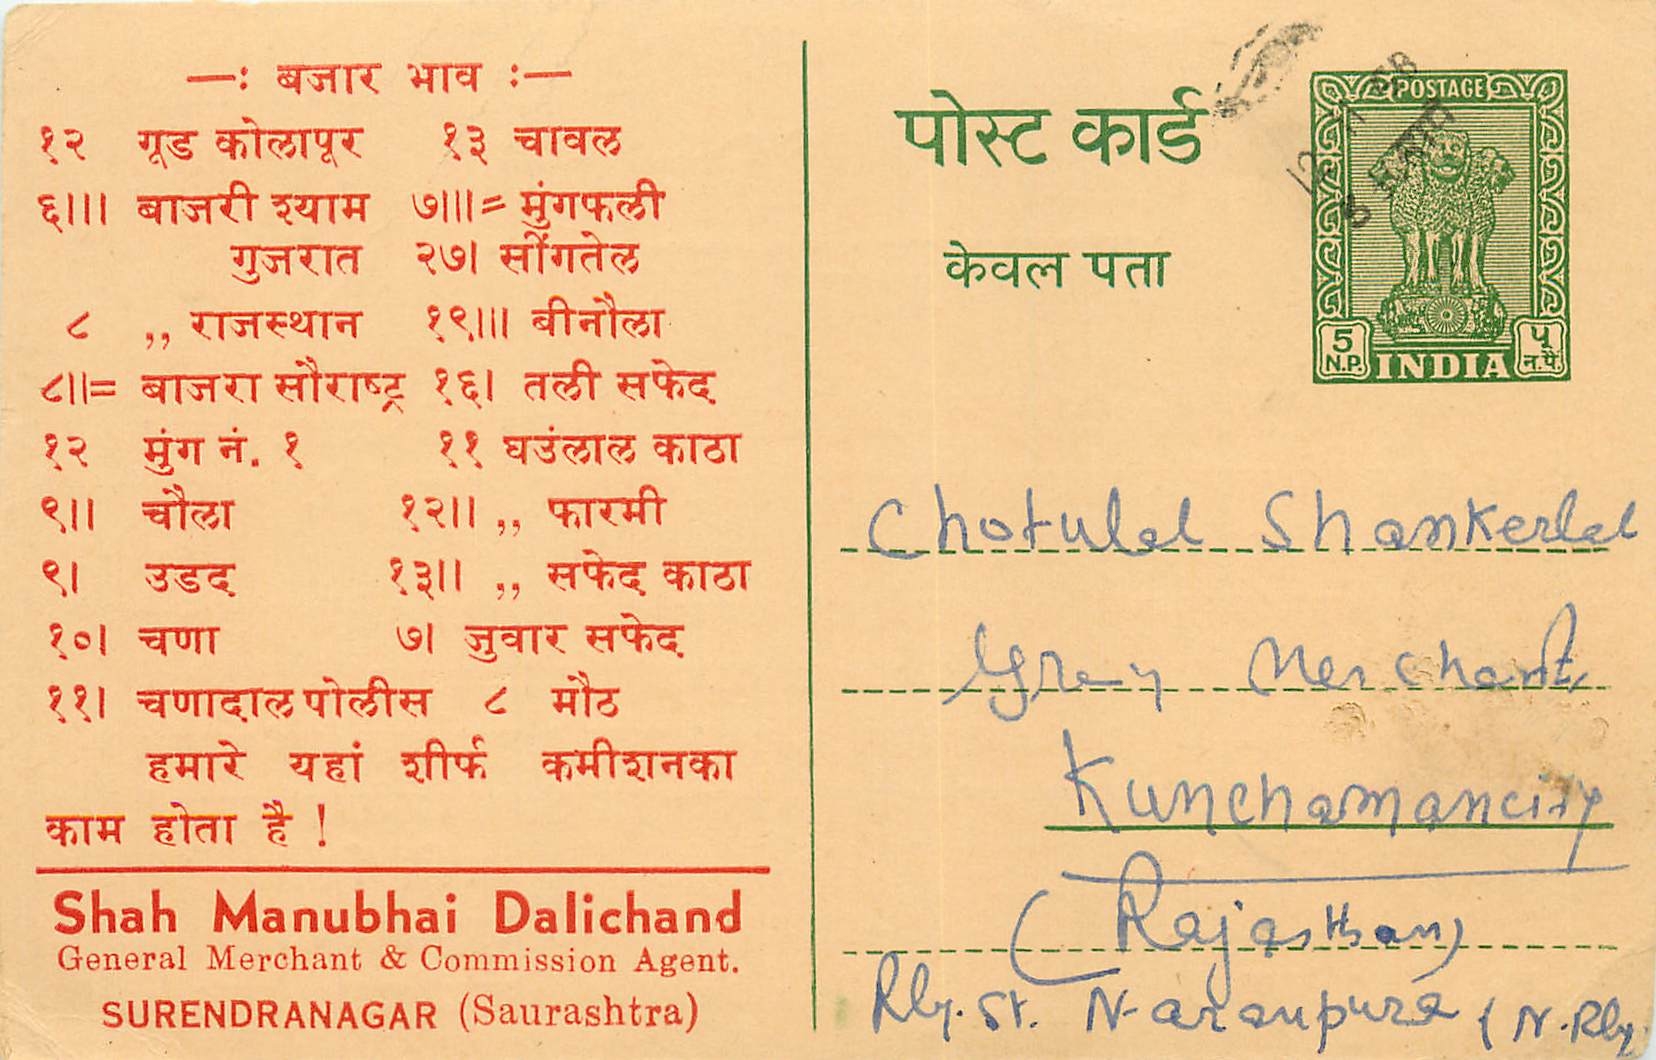 —: बजार भाव :—
१२ गूड कोलापूर १३ चावल
६||| बाजरी श्याम ७|||= मुंगफली
गुजरात २७| सींगतेल
८ ,, राजस्थान १९||| बीनौला
८||= बाजरा सौराष्ट्र १६| तली सफेद
१२ मुंग नं. १ ११ घउंलाल काठा
९|| चौला १२|| ,, फारमी
९| उडद १३|| ,, सफेद काठा
१०| चणा ७| जुवार सफेद
११| चणादाल पोलीस ८ मौठ
हमारे यहां शीर्फ कमीशनका
काम होता है !
Shah Manubhai Dalichand
General Merchant & Commission Agent.
SURENDRANAGAR (Saurashtra)
पोस्ट कार्ड
केवल पता
POSTAGE
5 N.P. INDIA ५ न.पै.
Chotulal Shankerlal
Grey Merchant,
Kunchamancity
(Rajasthan)
Rly. St. Naranpura (N.Rly.